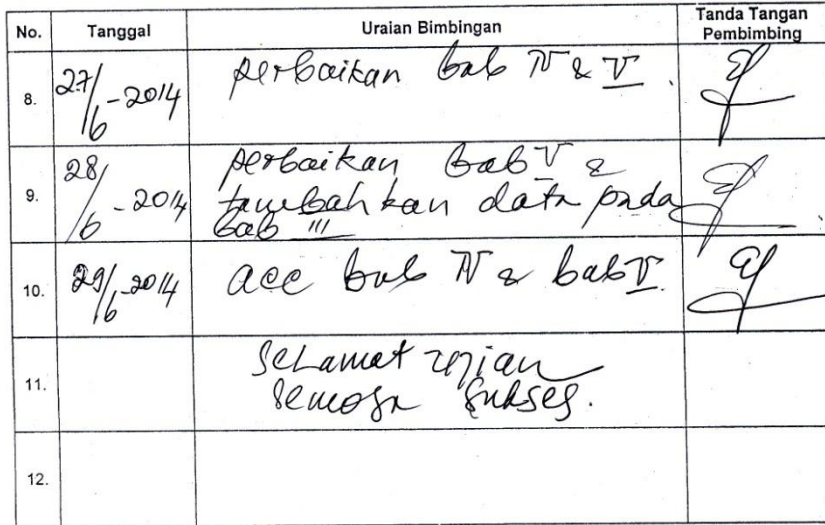 No. Tanggal Uraian Bimbingan Tanda Tangan Pembimbing
8. 27/6-2014 perbaikan bab IV & V.
9. 28/6-2014 perbaikan bab V &
tambahkan data pada
bab III
10. 29/6-2014 acc bab IV & bab V.
11. Selamat ujian
semoga sukses.
12.